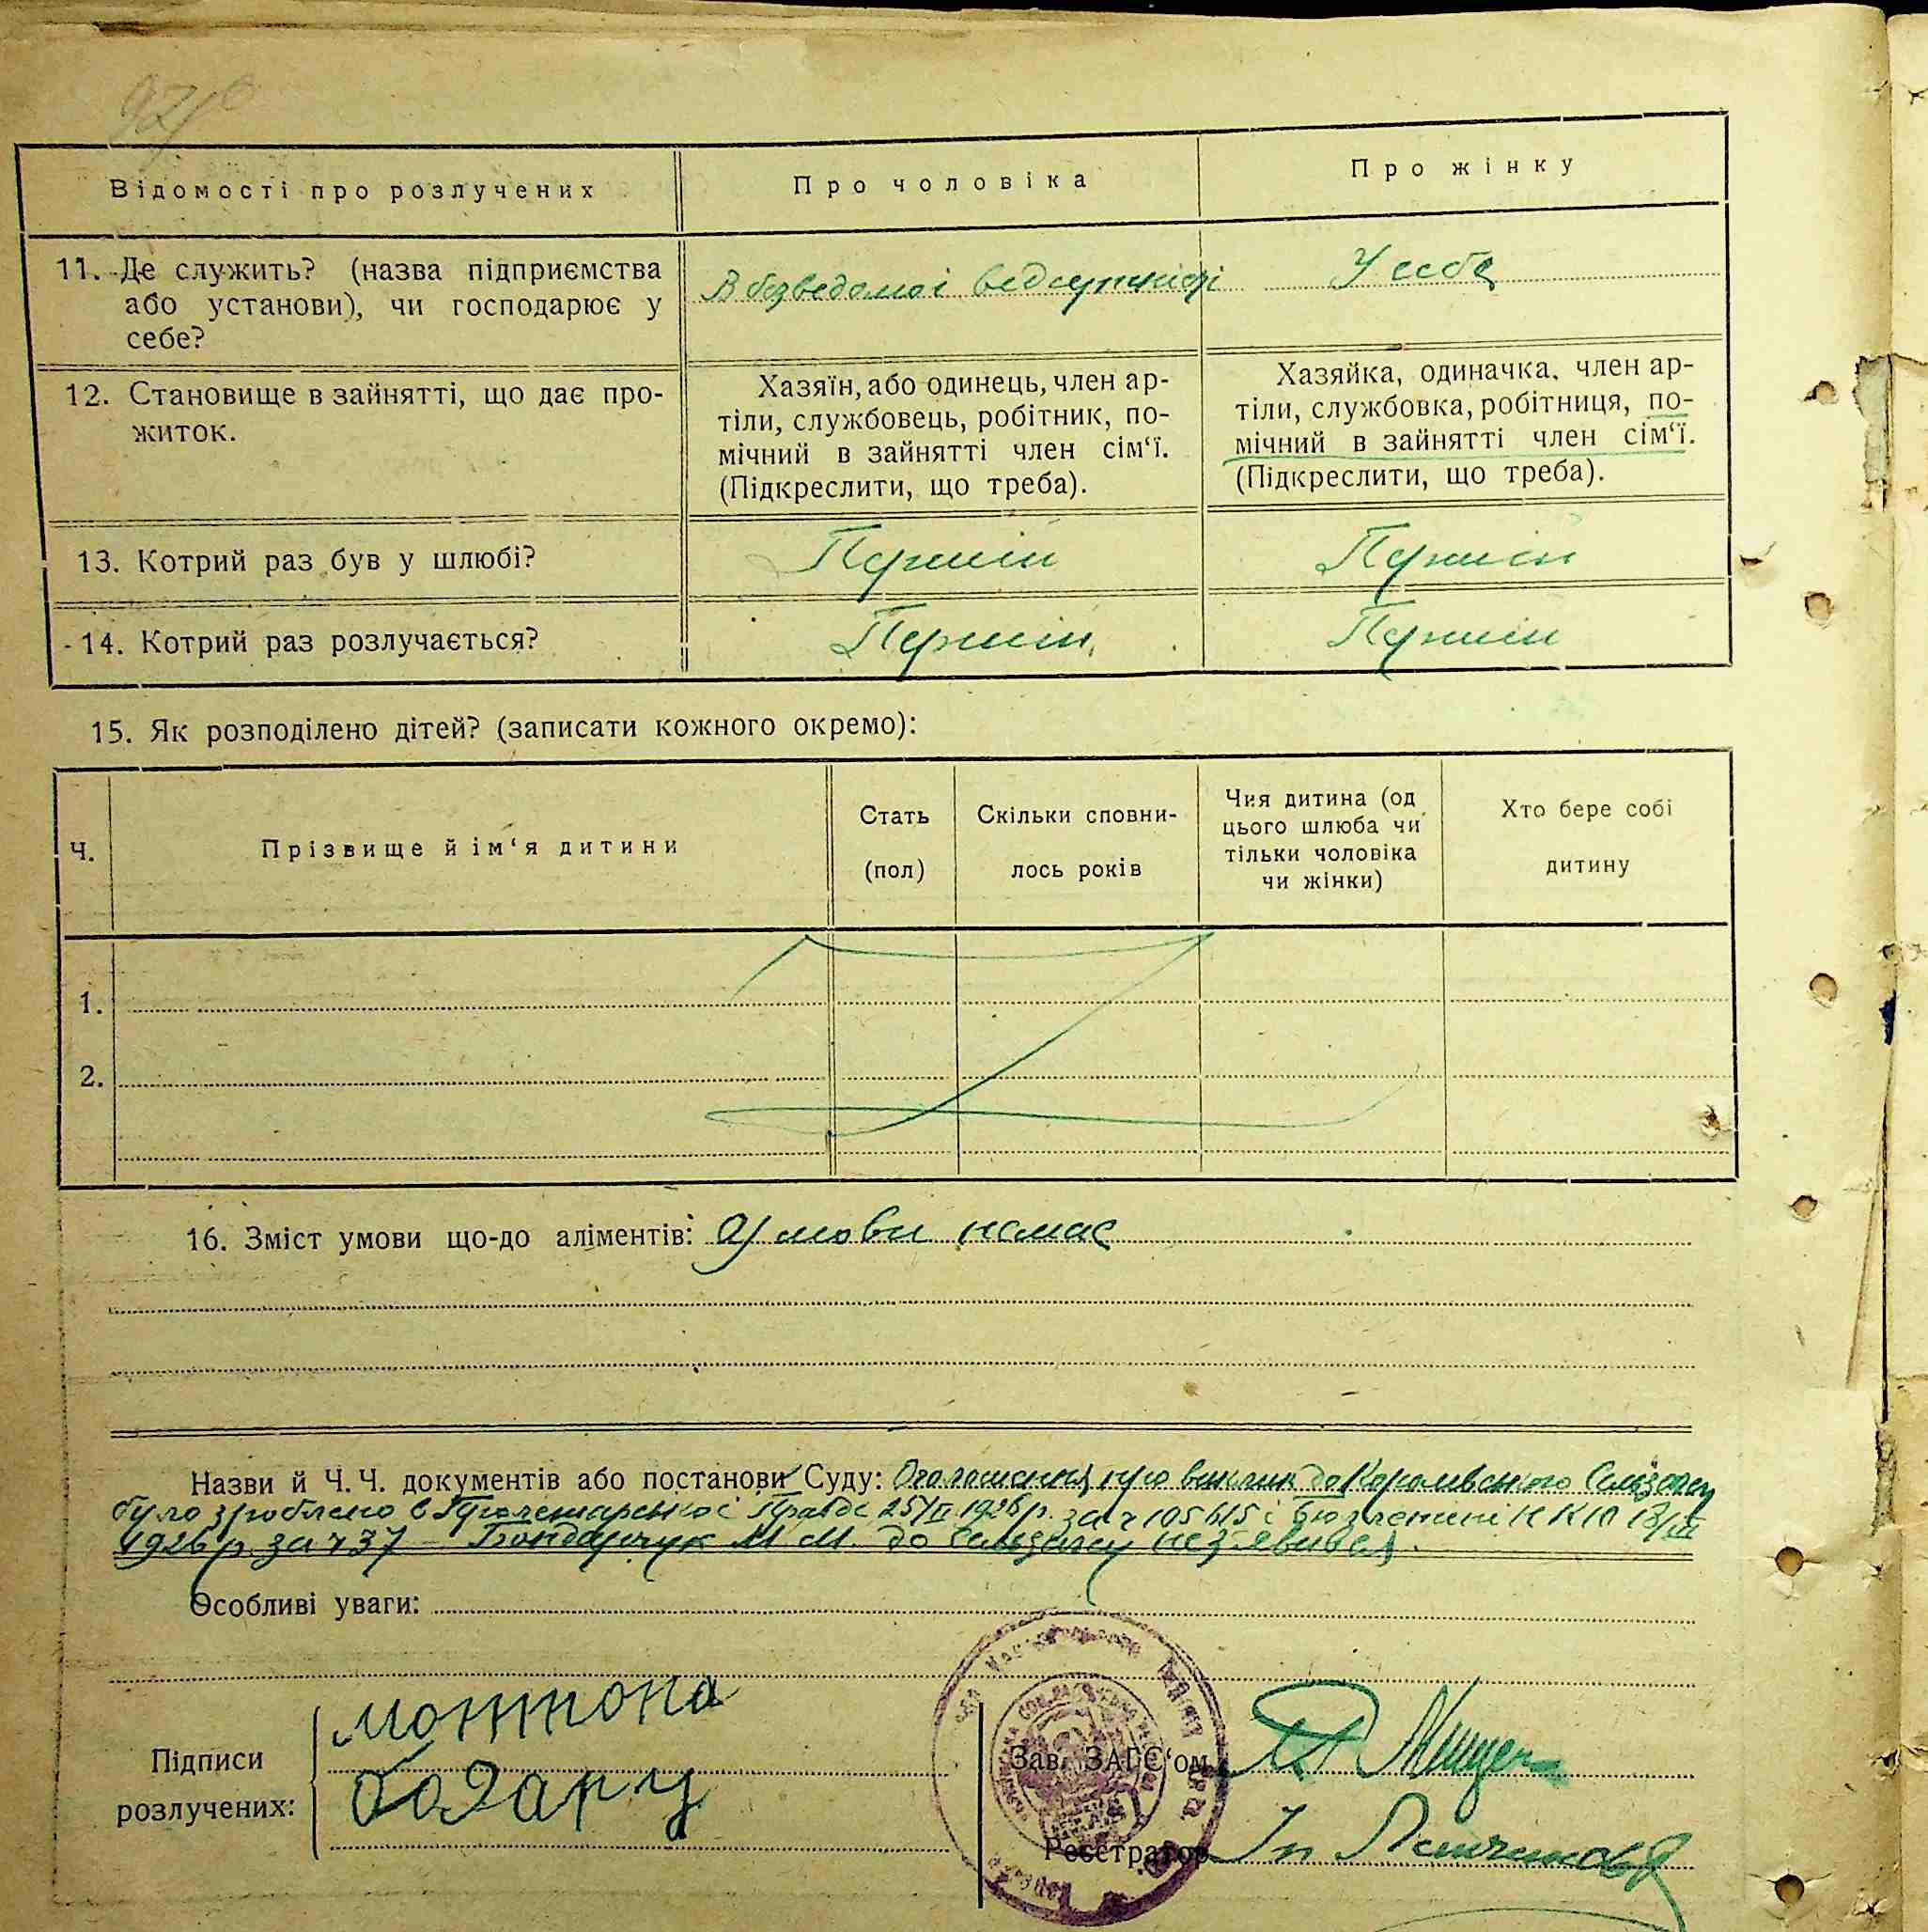 Відомості про розлучених
Про чоловіка
Про жінку
11. Де служить? (назва підприємства
або установи), чи господарює у
себе?
В безведомоі
У себе
12. Становище в зайнятті, що дає про-
житок.
Хазяїн, або одинець, член ар-
тіли, службовець, робітник, по-
мічний в зайнятті член сім‘ї.
(Підкреслити, що треба).
Хазяйка, одиначка, член ар-
тіли, службовка, робітниця, по-
мічний в зайнятті член сім‘ї.
(Підкреслити, що треба).
13. Котрий раз був у шлюбі?
Перший
Перший
14. Котрий раз розлучається?
Перший
Перший
15. Як розподілено дітей? (записати кожного окремо):
Ч.
Прізвище й ім‘я дитини
Стать
(пол)
Скільки сповни-
лось років
Чия дитина (од
цього шлюба чи
тільки чоловіка
чи жінки)
Хто бере собі
дитину
1.
2.
16. Зміст умови що-до аліментів: Умови немає
Назви й Ч.Ч. документів або постанови Суду: Оголошення про виклик до
було зроблено в Правде 25/II 1926 р. за ч і Бюлетині
1926 р. за ч 37 – Бондарчук М М. до нез'явився.
Особливі уваги:
Підписи
розлучених:
мотрона
бодарч
Зав. ЗАГС‘ом
Реєстратор